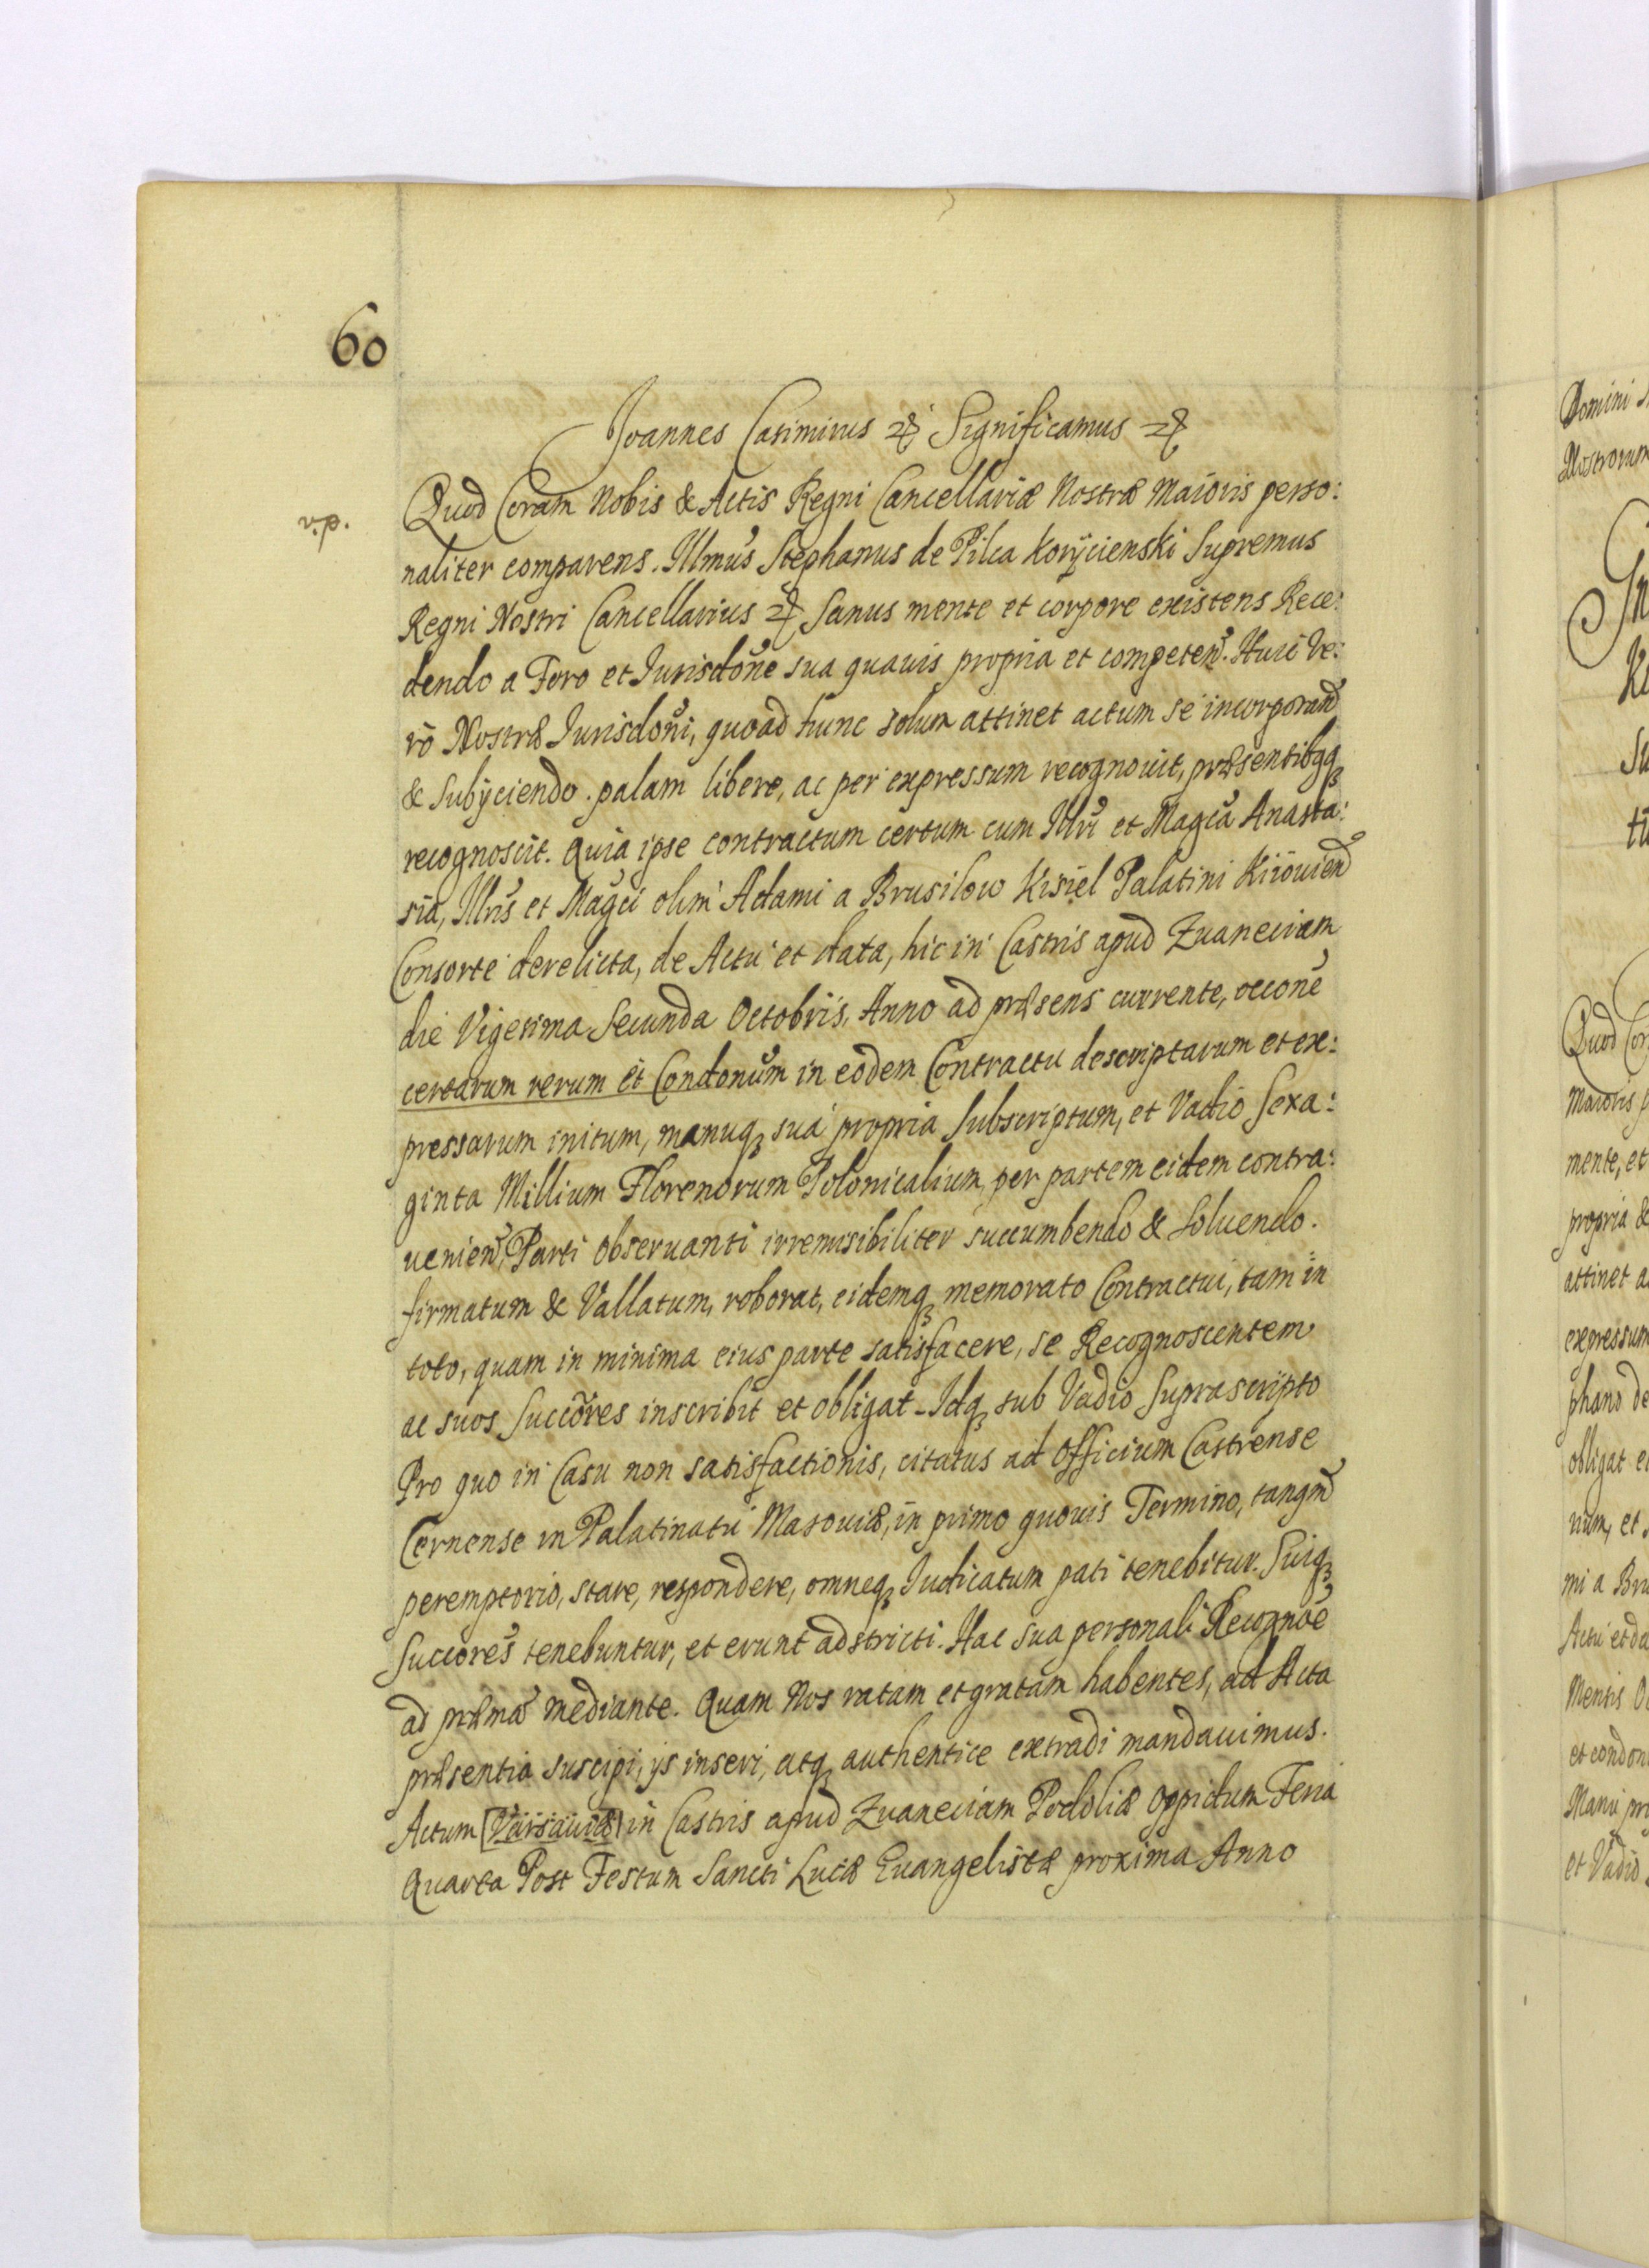 60
Joannes Casimirus &c Significamus &c
v.p.
Quod Coram Nobis & Actis Regni Cancellariæ Nostræ Maioris perso:
naliter comparens. Illmus Stephanus de Pilca Koryicienski Supremus
Regni Nostri Cancellarius &c Sanus mente et corpore existens Rece:
dendo a Foro et Jurisdone sua quavis propria et competen. Huic Ve:
ro Nostræ Jurisdoni, quoad hunc solum attinet actum se incorporand
& Subijciendo. palam libere, ac per expressum recognovit, præsentibqq
recognoscit. Quia ipse contractum certum cum Illri et Magca Anasta:
sia, Illris et Magci olim Adami a Brusilow Kisiel Palatini Kiiouien
Consorte derelicta, de Actu et data, hic in Castris apud Zuaneciam
die Vigesima Secunda Octobris, Anno ad præsens currente, occone
certarum rerum et Condonum in eodem Contractu descriptarum et ex:
pressarum initum, manuq sua propria Subscriptum, et Vadio Sexa:
ginta Millium Florenorum Polonicalium, per partem eidem contra:
uenien, Parti Obseruanti irremisibiliter succumbendo & Soluendo.
firmatum & Vallatum, roborat, eidemq memorato Contractui, tam in
toto, quam in minima eius parte satisfacere, se Recognoscentem
ac suos Succores inscribit et obligat. Idq sub Vadio Suprascripto
Pro quo in Casu non satisfactionis, citatus ad Officium Castrense
Cernense in Palatinatu Masouiæ, in primo quouis Termino, tanqm
peremptorio, stare, respondere, omneq Iudicatum pati tenebitur. Suiq
Succores tenebuntur, et erunt adstricti. Hac sua personali Recognoe
ad præma mediante. Quam Nos ratam et gratam habentes, ad Acta
præsentia suscipi, ijs inseri, atq authentice extradi mandauimus.
Actum [Varsauiæ] in Castris apud Zuaneciam Podoliæ Oppidum Feria
Quarta Post Festum Sancti Lucæ Euangelistæ proxima Anno